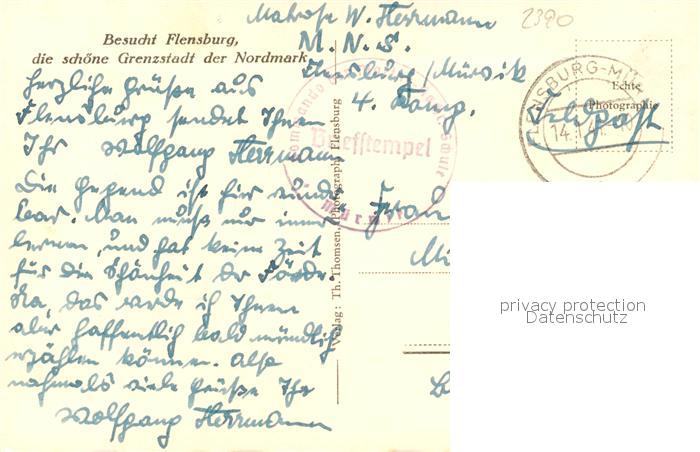 Matrose W. Herrmann
2390
M.N.S.
Flensburg/Mürwik
4. Komp.
Besucht Flensburg,
die schöne Grenzstadt der Nordmark
Herzliche Grüße aus
Flensburg sendet Ihnen
Ihr Wolfgang Herrmann
Die Gegend ist hier wunder
bar. Man muß nur immer
lernen, und hat keine Zeit
für die Schönheit der Förde.
Na, das werde ich Ihnen
aber hoffentlich bald mündlich
erzählen können. Also
nochmals viele Grüße Ihr
Wolfgang Herrmann
Verlag: Th. Thomsen, Photograph, Flensburg
Briefstempel
Mürwik
FLENSBURG-MÜ
14.
Echte
Photographie
Feldpost
privacy protection
Datenschutz